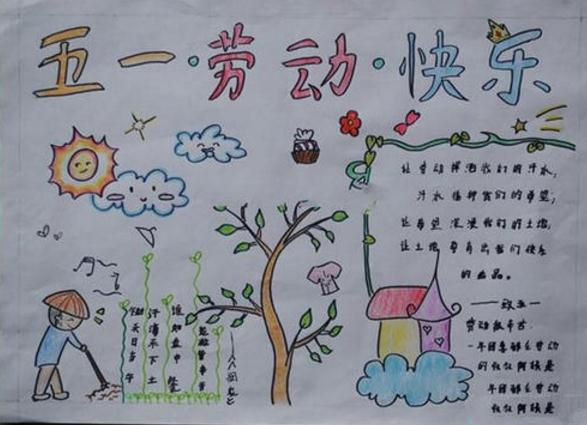 五一·劳动·快乐
让劳动挥洒我们的汗水,
汗水播种我们的希望;
让希望浸漫我们的土地,
让土地孕育出我们快乐
的作品。
——致五一
锄禾日当午
汗滴禾下土
谁知盘中餐
粒粒皆辛苦
劳动最辛苦
一年四季都在劳动